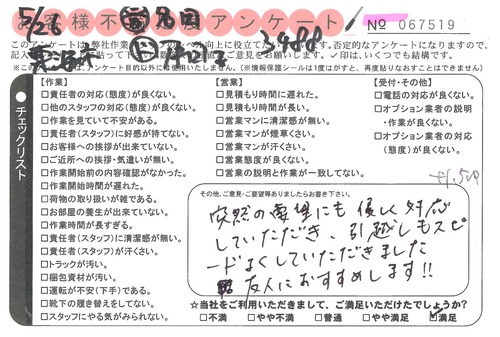 お客様不満足度アンケート
№ 067519
5/26
3400
このアンケートは弊社作業
記入
【作業】
□責任者の対応(態度)が良くない。
□他のスタッフの対応(態度)が良くない。
□作業を見ていて不安がある。
□責任者(スタッフ)に好感が持てない。
□お客様への挨拶が出来ていない。
□ご近所への挨拶・気遣いが無い。
□作業開始前の内容確認がなかった。
□作業開始時間が遅れた。
□荷物の取り扱いが雑である。
□お部屋の養生が出来ていない。
□作業時間が長すぎる。
□責任者(スタッフ)に清潔感が無い。
□責任者(スタッフ)が汗くさい。
□トラックが汚い。
□梱包資材が汚い。
□運転が不安(下手)である。
□靴下の履き替えをしてない。
□スタッフにやる気がみられない。
チェックリスト
【営業】
□見積もり時間に遅れた。
□見積もり時間が長い。
□営業マンに清潔感が無い。
□営業マンが煙草くさい。
□営業マンが汗くさい。
□営業態度が良くない。
□営業の説明と作業が一致してない。
【受付・その他】
□電話の対応が良くない。
□オプション業者の説明
・作業が良くない。
□オプション業者の対応
(態度)が良くない。
その他、ご意見・ご要望等ありましたらお書き下さい。
突然の要望にも優しく対応
していただだき、引越しもスピ
ードよくしていただだきました
友人におすすめします!!
☆当社をご利用いただきまして、ご満足いただけたでしょうか?
□不満 □やや不満 □普通 □やや満足 ☑満足